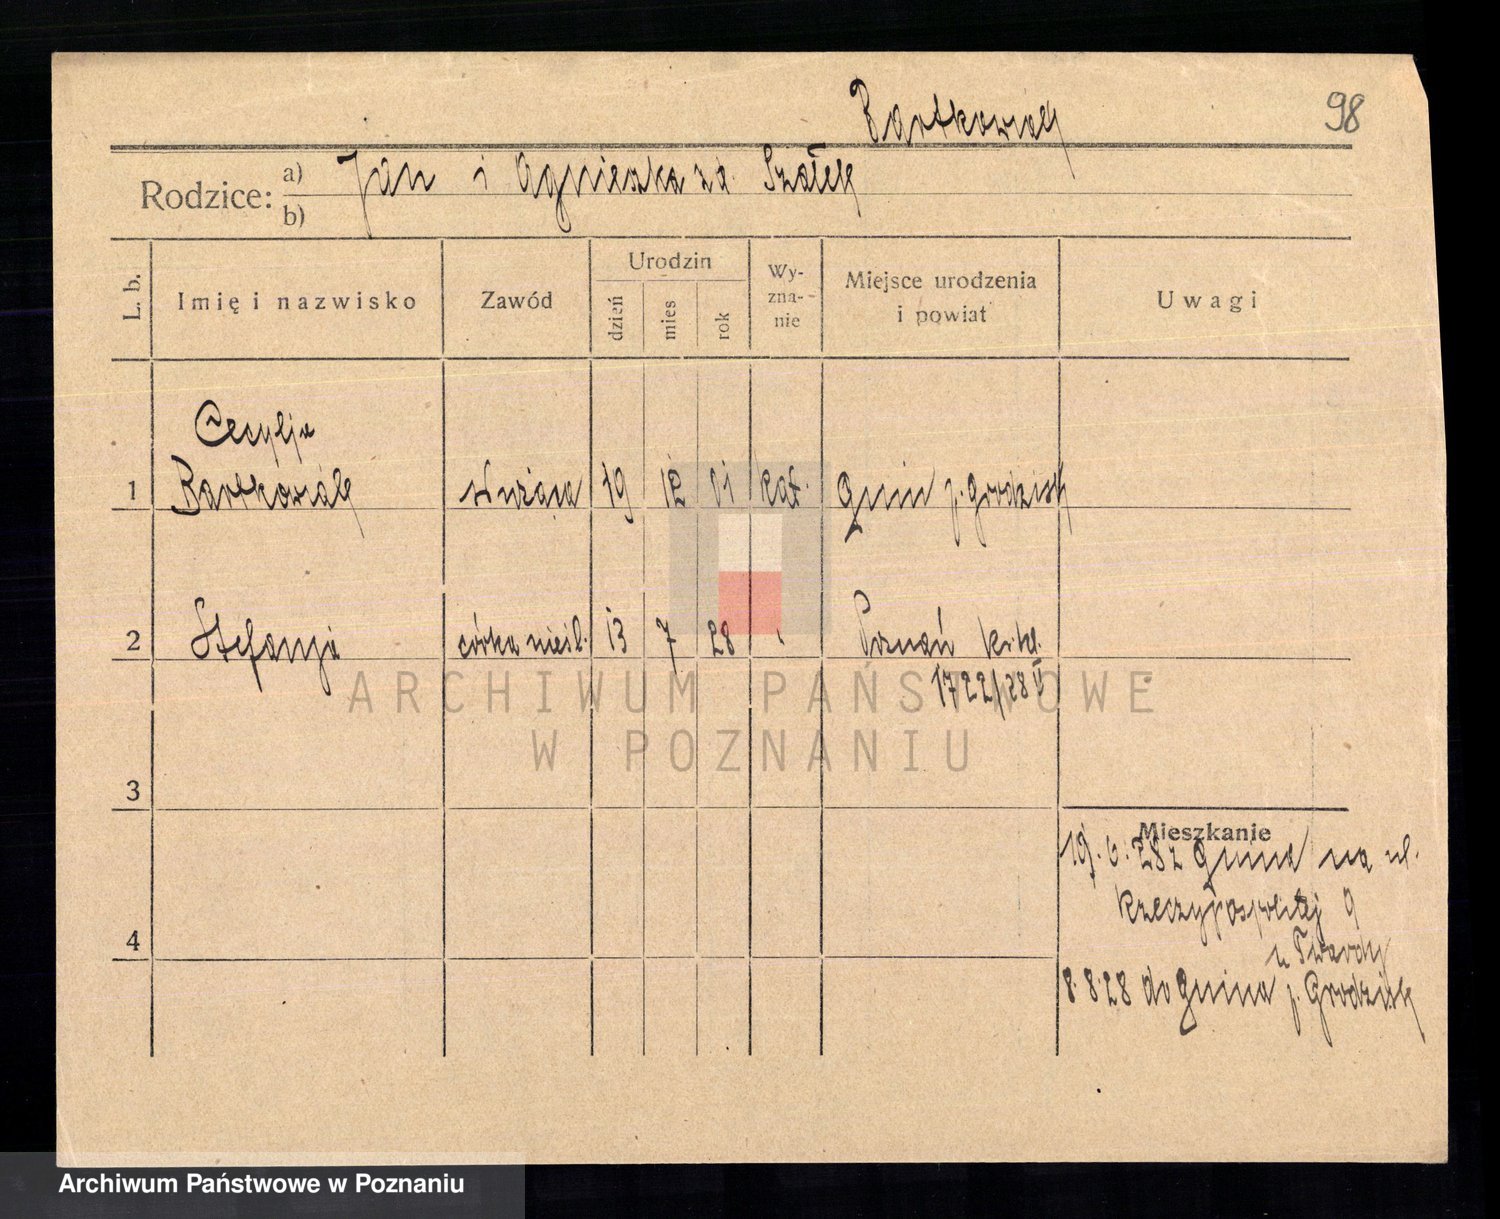 Bartkowiak
98
Rodzice:
a) Jan i Agnieszka zd. Szałek
b)
L. b.
Imię i nazwisko
Zawód
Urodzin
dzień
mies
rok
Wy-
zna-
nie
Miejsce urodzenia
i powiat
Uwagi
Cecylja
1 Bartkowiak służąca 19 12 01 kat. Gnin p. Grodzisk
2 Stefanja córka nieśl. 13 7 28 Poznań
1722/28 II
3
4
Mieszkanie
19. 6. 28 z Gnina na ul.
Rzeczypospolitej 9
u Twardy
8. 8. 28 do Gnina p. Grodzisk
ARCHIWUM PAŃSTWOWE
W POZNANIU
Archiwum Państwowe w Poznaniu